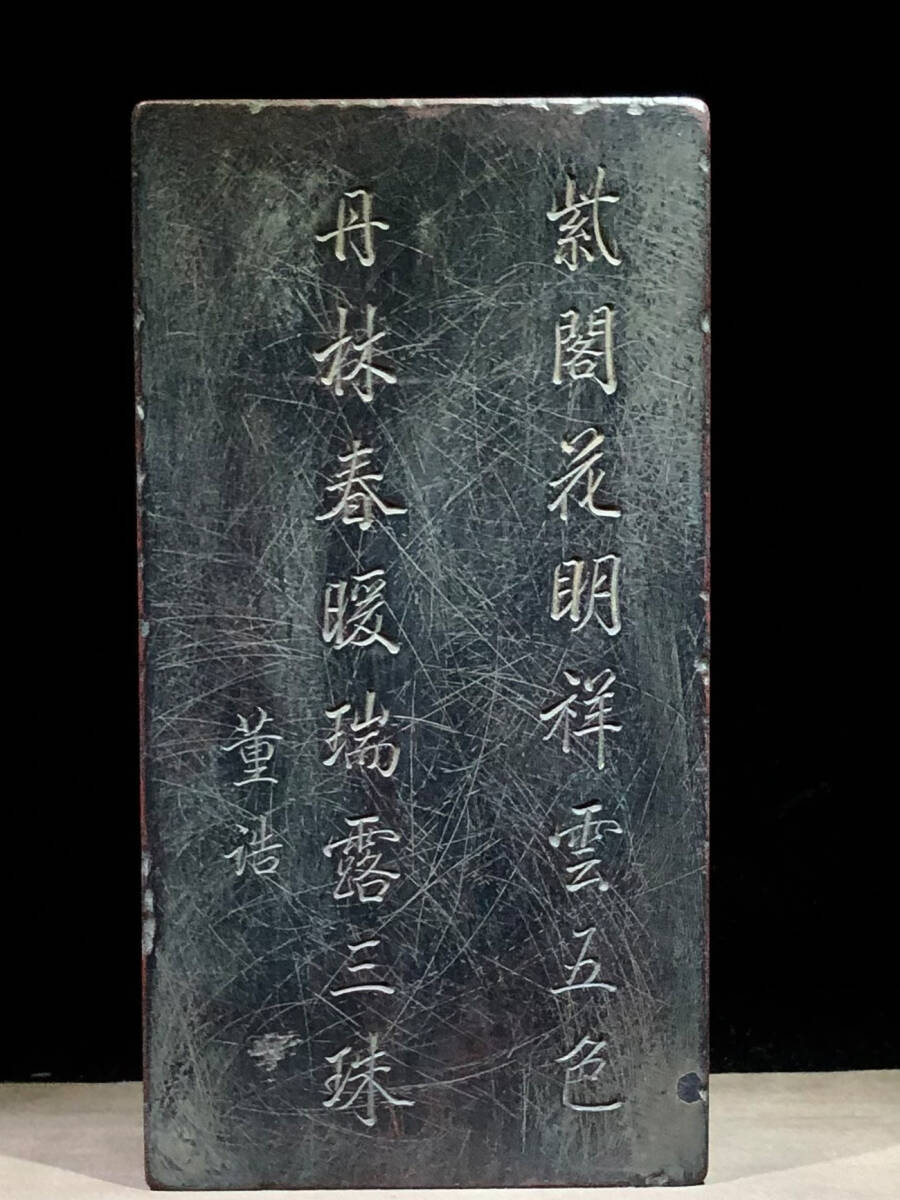 紫閣花明祥雲五色
丹林春暖瑞露三珠
董诰